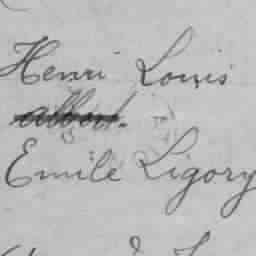 Henri Louis
albert.
Emile Ligory